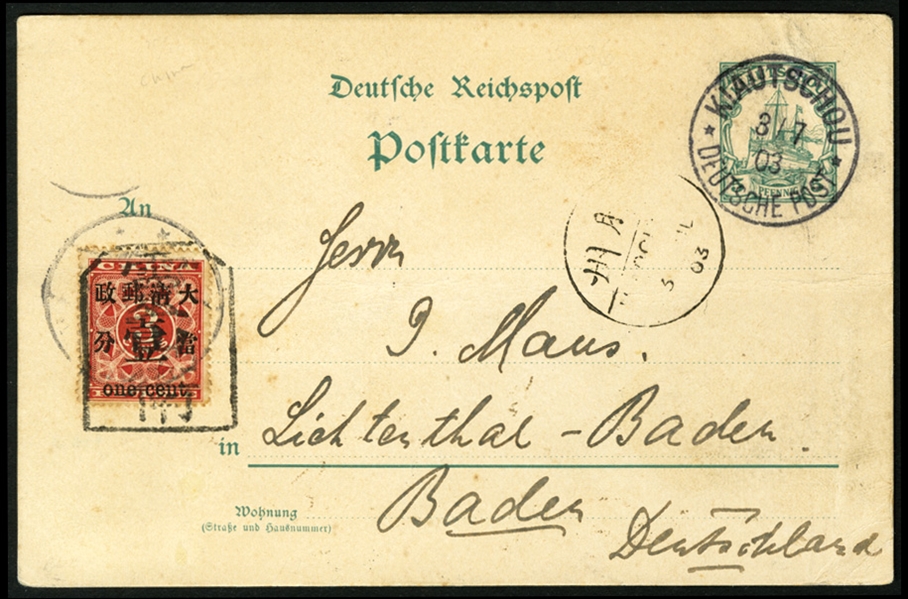 China
Deutsche Reichspost
Postkarte
KIAUTSCHOU
3/7
03
DEUTSCHE POST
PFENNIG
An
Herrn
J. Maus.
in Lichtenthal-Baden.
Baden
Deutschland
Wohnung
(Straße und Hausnummer)
CHINA
大清郵政
當壹分
one cent.
5
03